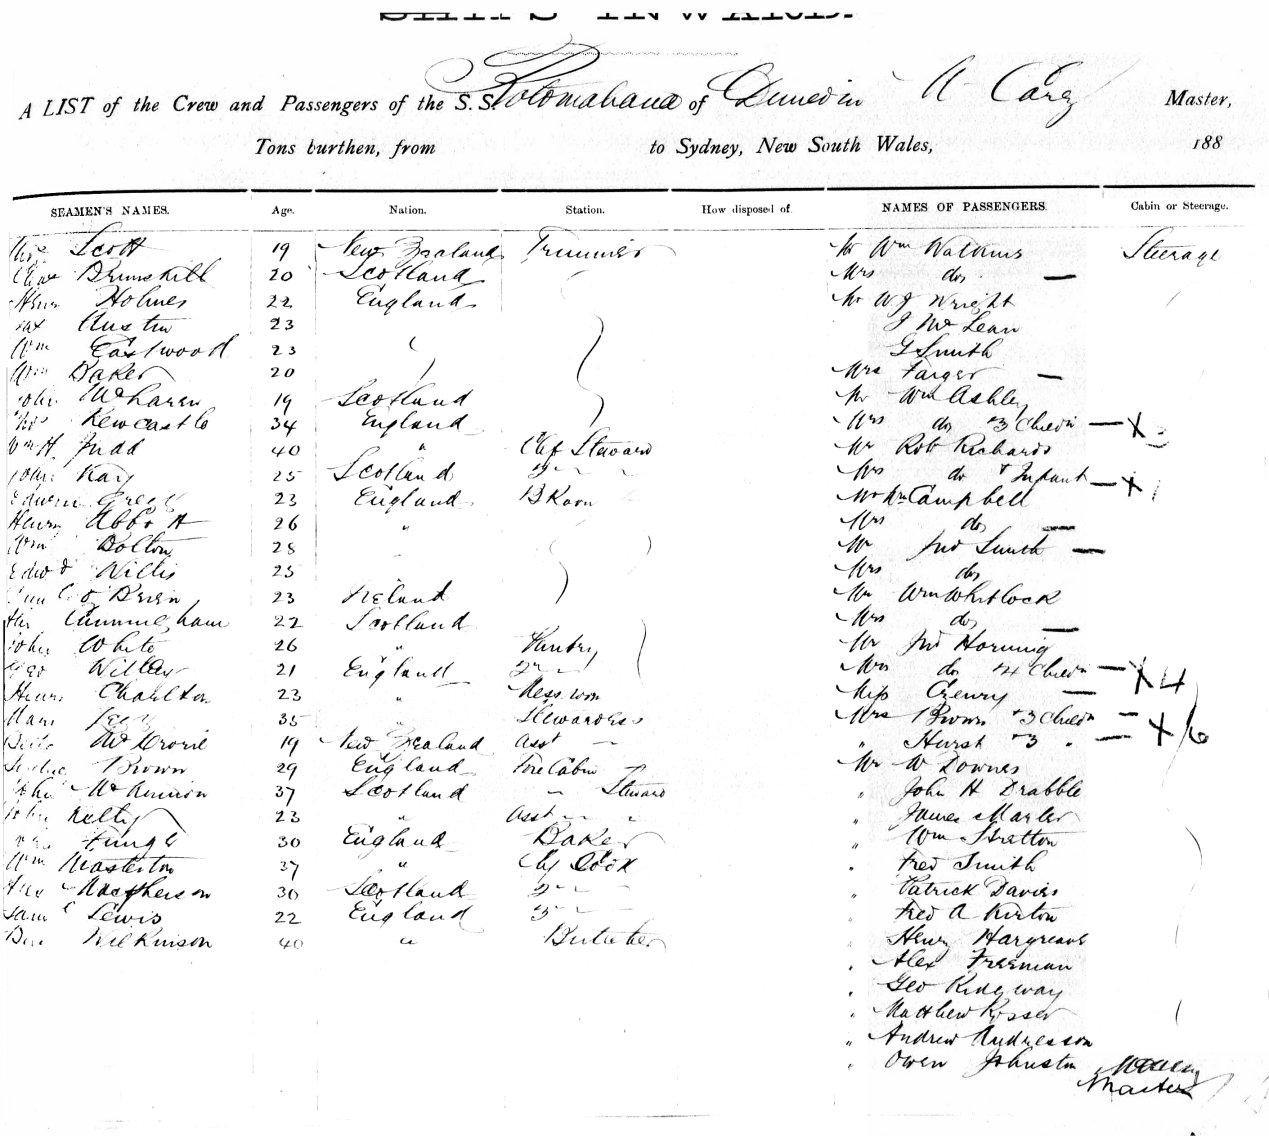 SHIPS INWARD.
A LIST of the Crew and Passengers of the S.S. Rotomahana of Dunedin A Carey Master,
Tons burthen, from to Sydney, New South Wales, 188
SEAMEN'S NAMES. Age. Nation. Station. How disposed of. NAMES OF PASSENGERS. Cabin or Steerage.
Scott 19 New Zealand Trimmer Mr Wm Steerage
Brunskill 20 Scotland Mrs do —
Holmes 22 England Mr W J Wright
Austin 23 J McLean
Wm Eastwood 23 G Smith
Wm Baker 20 Mrs Farger —
John McLaren 19 Scotland Mr Wm Ashley
Newcastle 34 England Mrs do + 3 Childn — X 3
Wm H. Judd 40 " Chf Steward Mr Rob Richards
John Kay 25 Scotland 2nd " Mrs do + Infant — X 1
Edwin Green 23 England B Room Mr Wm Campbell
Henry Abbott 26 " Mrs do —
Wm Bolton 28 Mr Jno Smith —
Edwd Willis 25 Mrs do
O'Brien 23 Ireland Mr Wm Whitlock
Cunningham 22 Scotland Mrs do —
John White 26 " Pantry Mr Jno Horning
Geo 21 England 2nd " Mrs do + 4 Childn — X 4
Henry Charlton 23 " Mess room Miss —
35 " Stewardess Mrs Brown + 3 Childn — X 6
19 New Zealand Asst " " Hurst + 3 " —
Brown 29 England Fore Cabin Mr W Downes
John McKinnon 37 Scotland " Steward " John H Drabble
John Kelly 23 " Asst " " " James Marler
30 England Baker " Wm Stretton
Wm Masterton 37 " Chf Cook " Fred Smith
Macpherson 30 Scotland 2nd " " Patrick Davies
Saml Lewis 22 England 3rd " " Fred A Kirton
Ben Wilkinson 40 " Butcher " Henry Hargreaves
" Alex Freeman
" Geo Ridgway
" Matthew Rosser
" Andrew Andresson
" Owen Johnston
Master